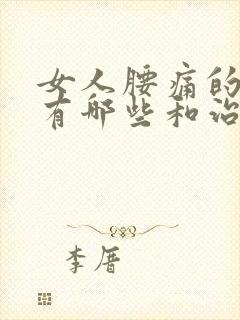 女人腰痛的
有哪些和治
李厝